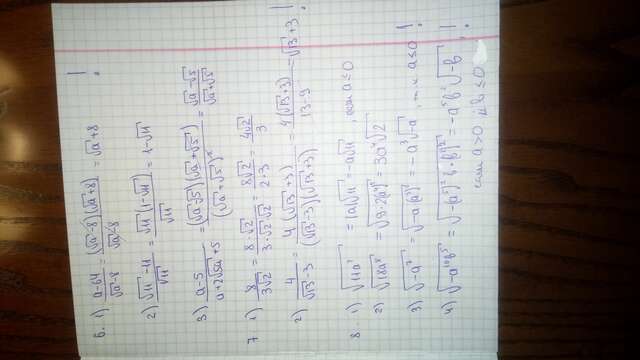 6. 1) a-64/√a-8 = (√a-8)(√a+8)/√a-8 = √a+8 !
2) √11-11/√11 = √11(1-√11)/√11 = 1-√11
3) a-5/a+2√5a+5 = (√a-√5)(√a+√5)/(√a+√5)² = √a-√5/√a+√5
7 1) 8/3√2 = 8·√2/3·√2·√2 = 8√2/2·3 = 4√2/3
2) 4/√13-3 = 4(√13+3)/(√13-3)(√13+3) = 4(√13+3)/13-9 = √13+3 !
8 1) √11a² = |a|√11 = -a√11 если a≤0
2) √18a⁸ = √9·2(a⁴)² = 3a⁴√2
3) √-a⁷ = √-a(a³)² = -a³√-a, т.к a≤0 !
4) √-a¹⁰b⁵ = √-(a⁵)²b·(b²)² = -a⁵b²√-b !
если a>0 b≤0